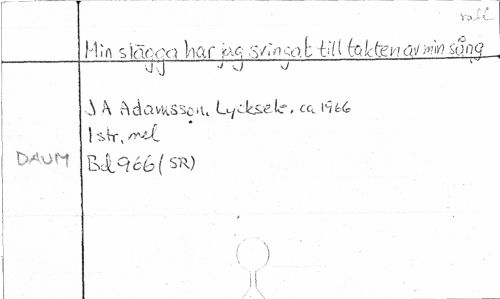 rall
Min slägga har jag svingat till takten av min sång
J A Adamsson, Lycksele, ca 1966
1 str, mel
DAUM Bd 966 (SR)